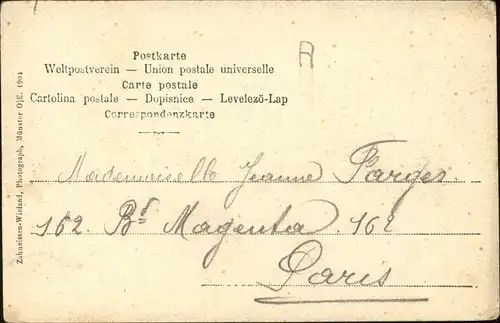 A
Postkarte
Weltpostverein — Union postale universelle
Carte postale
Cartolina postale — Dopisnice — Levelezö-Lap
Correspondenzkarte
Zahneissen-Wieland, Photograph, Münster O|E. 1904
Mademoiselle Jeanne Farges.
162. Bd Magenta. 162
Paris